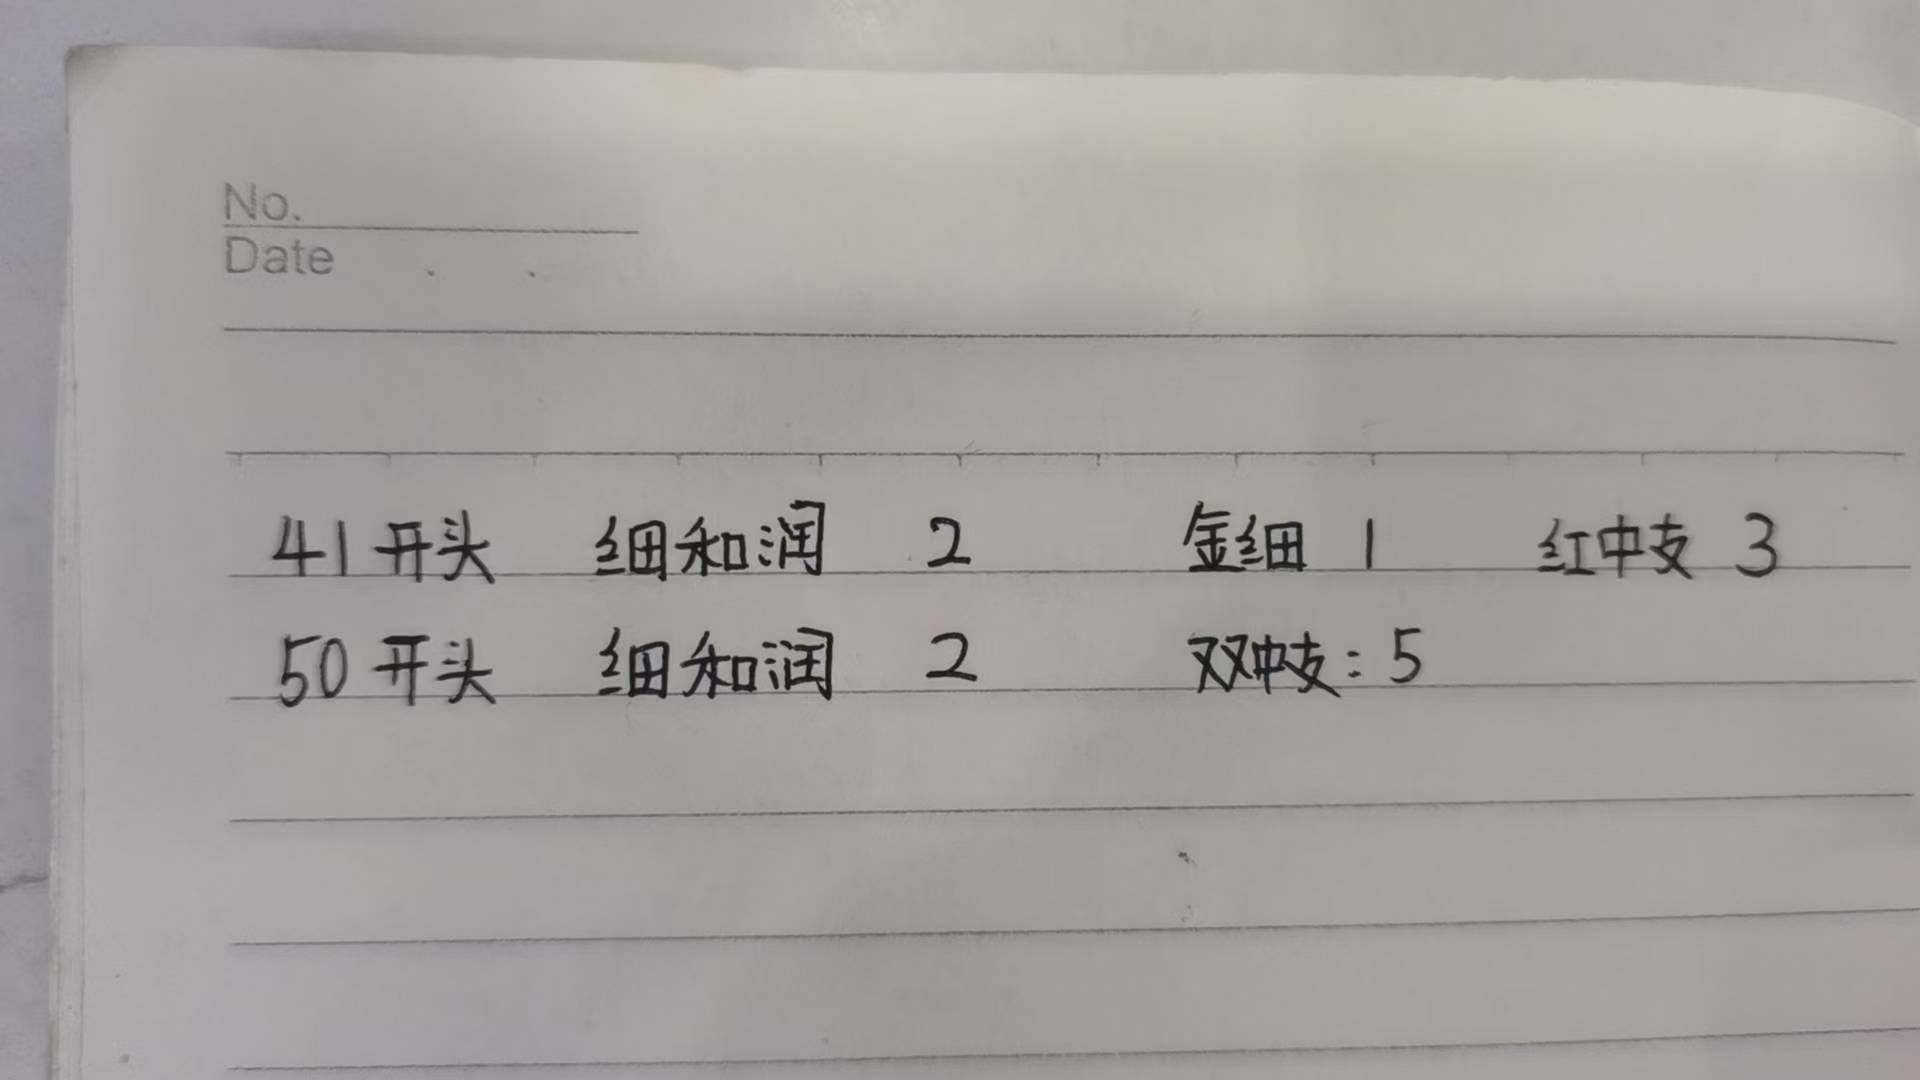 No.
Date . .
41开头 细和润 2 金细 1 红中支 3
50开头 细和润 2 双中支:5